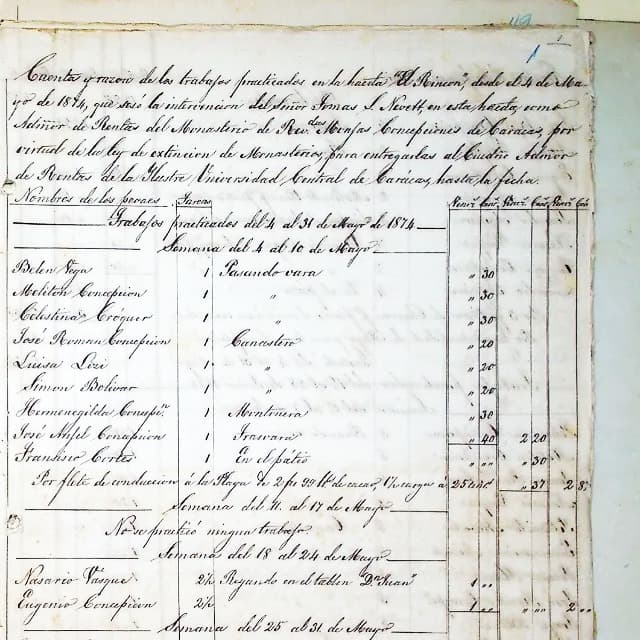 119
1
Cuenta y razon de los trabajos practicados en la hacda "El Rincon", desde el 4 de Ma-
yo de 1874, que cesó la intervencion del Señor Tomas S. Nivett en esta hacda, como
Admor de Rentas del Monasterio de Revdas Monjas Concepciones de Carácas, por
virtud de la ley de extincion de Monasterios, para entregarlas al Cuadro Admor
de Rentas de la Ilustre Universidad Central de Carácas, hasta la fecha.
Nombres de los peones Tareas Venezs Cens Venezs Cens Venezs Cens
Trabajos practicados del 4 al 31 de Mayo de 1874
Semana del 4 al 10 de Mayo
Belen Vega 1 Pasando vara " 30
Meliton Concepcion 1 " " 30
Celestina Cróquer 1 " " 30
José Roman Concepcion 1 Canastero " 20
Luisa Lozi 1 " " 20
Simon Bolivar 1 " " 20
Hermenegilda Concepn 1 Montonera " 30
José Anjel Concepcion 1 Trasvara " 40 2 20
Fransisco Cortes 1 En el pátio " " " 30
Por flete de conduccion á la Plaza de 2 fas 99 lbs de cacao, 1½ carga á 25 " 37 2 8
Semana del 11 al 17 de Mayo
No se practicó ningun trabajo
Semana del 18 al 24 de Mayo
Nasario Vásque 2½ Regando en el tablon "Dn Juan" 1 "
Eugenio Concepcion 2½ 1 " " " 2 "
Semana del 25 al 31 de Mayo